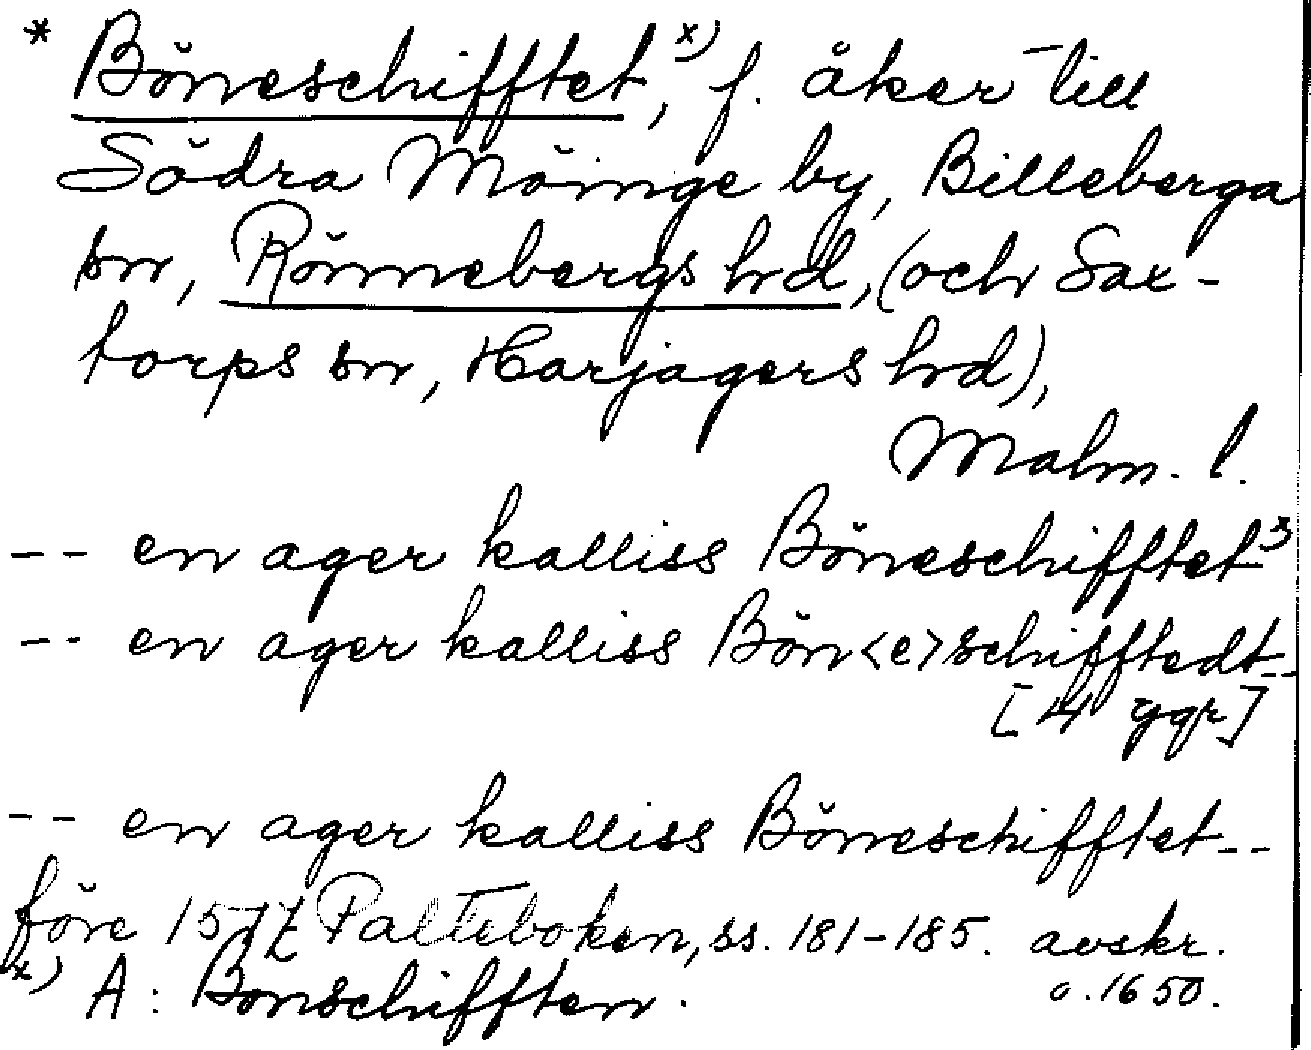 * Böneschifftet, x) f. åker till
Södra Möinge by, Billeberga
sn, Rönnebergs hd, (och Sax-
torps sn, Harjagers hd),
Malm. l.
-- en ager kalliss Böneschifftet x)
-- en ager kalliss Bön<e>schifftedt--
[4 ggr]
-- en ager kalliss Böneschifftet--
före 1577 Palteboken, ss. 181-185. avskr.
o. 1650.
x) A: Bonschifften.